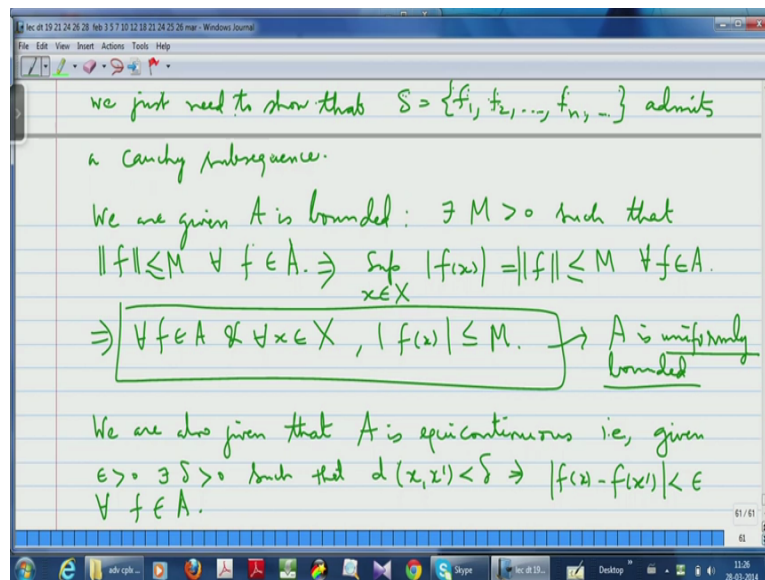 lec dt 19 21 24 26 28 feb 3 5 7 10 12 18 21 24 25 26 mar - Windows Journal
File Edit View Insert Actions Tools Help
we just need to show that S = {f₁, f₂, ..., fₙ, ...} admits
a Cauchy subsequence.
We are given A is bounded : ∃ M > 0 such that
||f|| ≤ M ∀ f ∈ A. ⇒ Sup |f(x)| = ||f|| ≤ M ∀ f ∈ A.
x ∈ X
⇒ ∀ f ∈ A & ∀ x ∈ X, |f(x)| ≤ M. → A is uniformly
bounded
We are also given that A is equicontinuous i.e., given
ε > 0 ∃ δ > 0 such that d(x, x') < δ ⇒ |f(x) - f(x')| < ε
∀ f ∈ A.
61 / 61
61
adv cplx ...
Skype
lec dt 19...
Desktop
11:26
28-03-2014